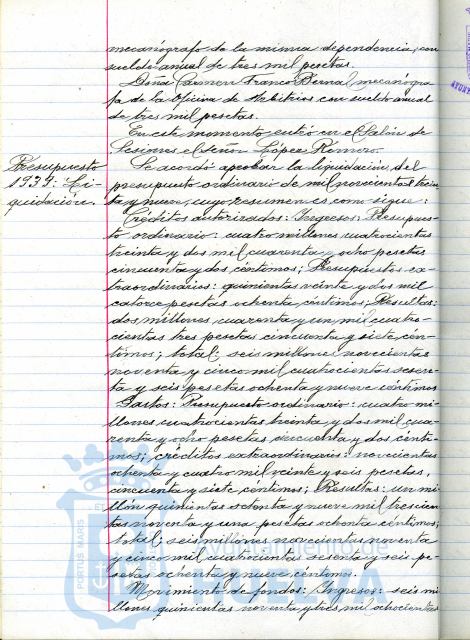 mecanógrafo de la misma dependencia, con
sueldo anual de tres mil pesetas.
Doña Carmen Franco Bernal, mecanogra-
fa de la Oficina de Arbitrios con sueldo anual
de tres mil pesetas.
En este momento entró en el Salón de
Sesiones el señor López Romero.
Presupuesto
1939: Li-
quidación.
Se acordó aprobar la liquidación del
presupuesto ordinario de mil novecientos trein-
ta y nueve, cuyo resumen es como sigue:
Créditos autorizados: Ingresos: Presupues-
to ordinario: cuatro millones cuatrocientas
treinta y dos mil cuarenta y ocho pesetas
cincuenta y dos céntimos; Presupuestos ex-
traordinarios: quinientas veinte y dos mil
catorce pesetas ochenta céntimos; Resultas:
dos millones cuarenta y un mil cuatro-
cientas tres pesetas cincuenta y siete cén-
timos; total: seis millones novecientas
noventa y cinco mil cuatrocientas sesen-
ta y seis pesetas ochenta y nueve céntimos
Gastos: Presupuesto ordinario: cuatro mi-
llones cuatrocientas treinta y dos mil cua-
renta y ocho pesetas cincuenta y dos cénti-
mos; créditos extraordinarios: novecientas
ochenta y cuatro mil veinte y seis pesetas,
cincuenta y siete céntimos; Resultas: un mi-
llón quinientas ochenta y nueve mil trescien-
tas noventa y una pesetas ochenta céntimos;
total; seis millones novecientas noventa
y cinco mil cuatrocientas sesenta y seis pe-
setas ochenta y nueve céntimos.
Movimiento de fondos: Ingresos: seis mi-
llones quinientas noventa y tres mil ochocientas
PORTUS MARIS
Ayuntamiento de
HUELVA